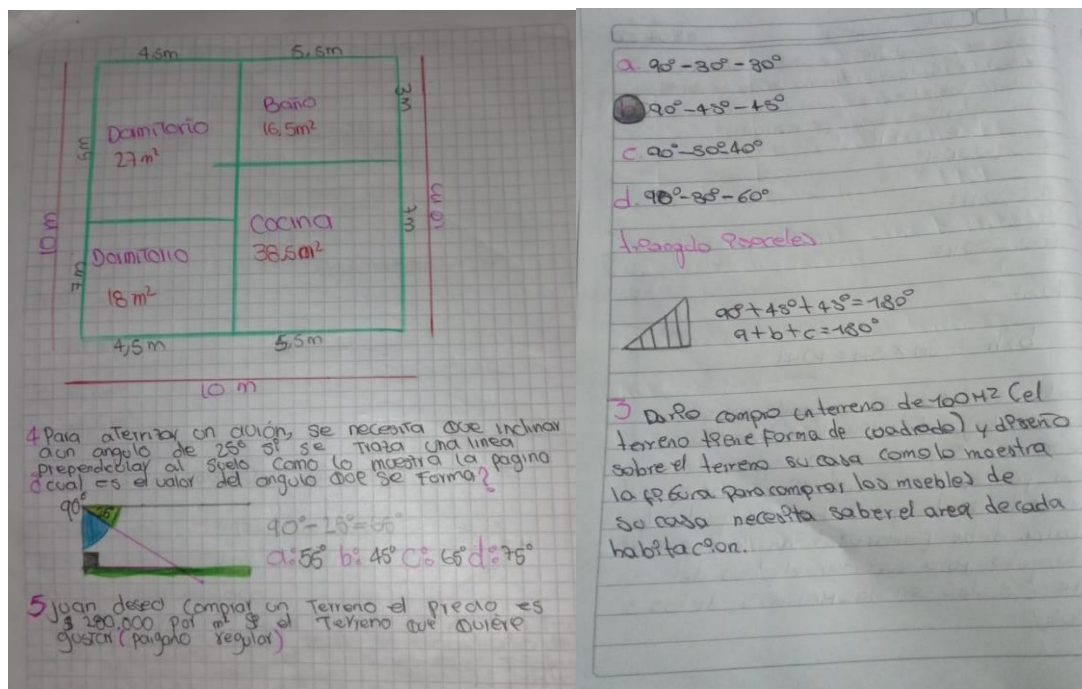 4.5m 5,5m
Dormitorio
27 m²
Baño
16,5m²
3m
6m
10 m
Cocina
38.5m²
7m
10 m
Dormitorio
18 m²
4,5m 5,5m
10 m
4 Para aterrizar un avión, se necesita que inclinar
a un angulo de 25° si se Traza una linea
prependicular al suelo como lo muestra la pagina
¿cual es el valor del angulo que se forma?
90° 25°
90°-25°=65°
a: 55° b: 45° c: 65° d: 75°
5 Juan desea comprar un Terreno el precio es
$ 280.000 por m² si el Terreno que quiere
(poligano regular)
a. 90° - 30° - 30°
b. 90° - 45° - 45°
c. 90° - 50° 40°
d. 90° - 80° - 60°
triangulo Isoceles
90° + 45° + 45° = 180°
a + b + c = 180°
3 Dario compro un terreno de 100 M2 (el
terreno tiene forma de cuadrado) y diseño
sobre el terreno su casa como lo muestra
la figura para comprar los muebles de
su casa necesita saber el area de cada
habitacion.